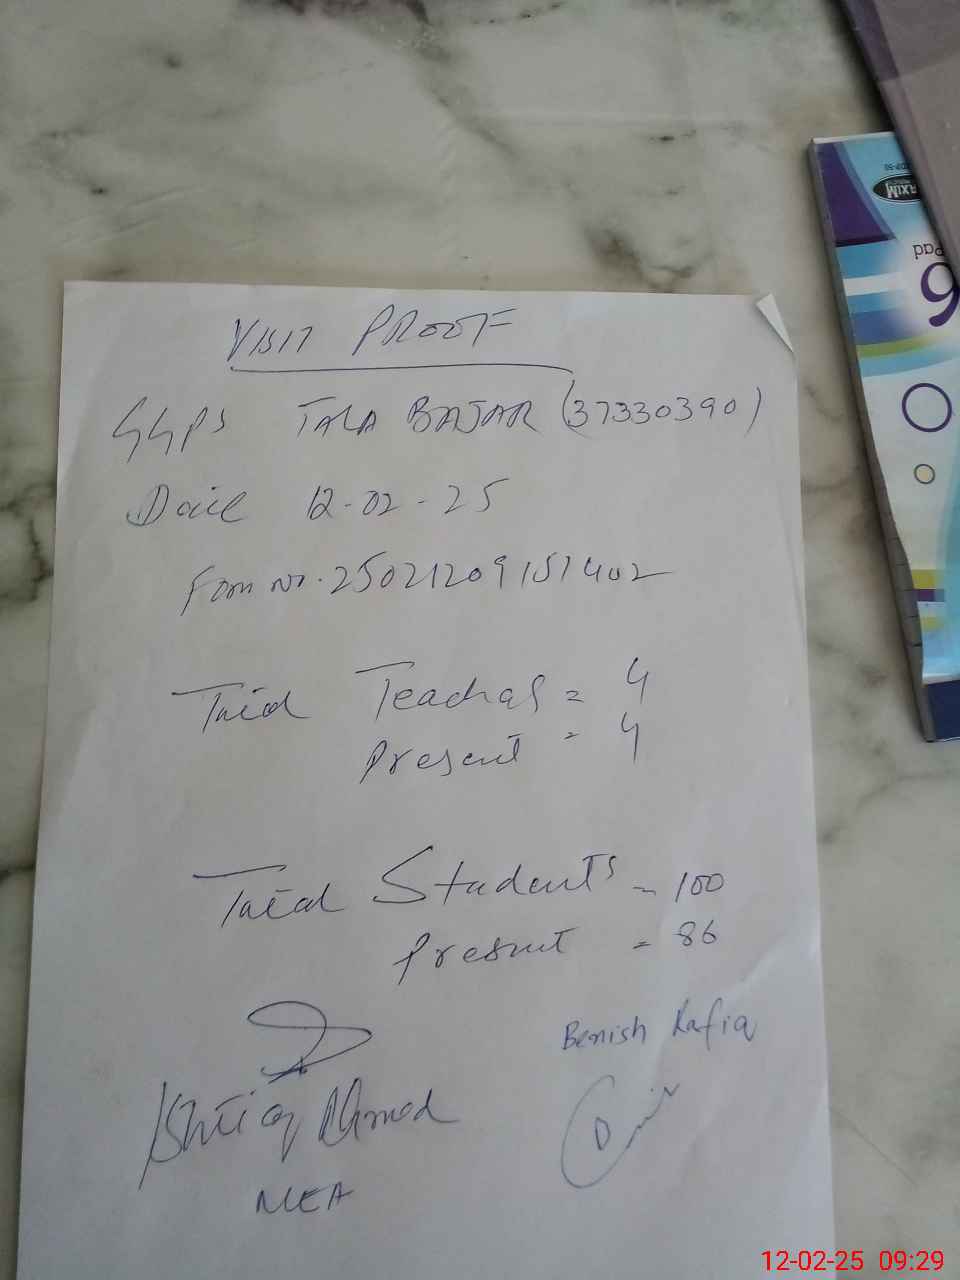 VISIT PROOF
GGPS TALA BAJAR (37330390)
Date 12-02-25
Form No. 25021209151402
Total Teachers = 4
Present = 4
Total Students = 100
Present = 86
Benish Rafiq
Ishtiaq Ahmed
MEA
MAXIM
Pad
6
12-02-25 09:29